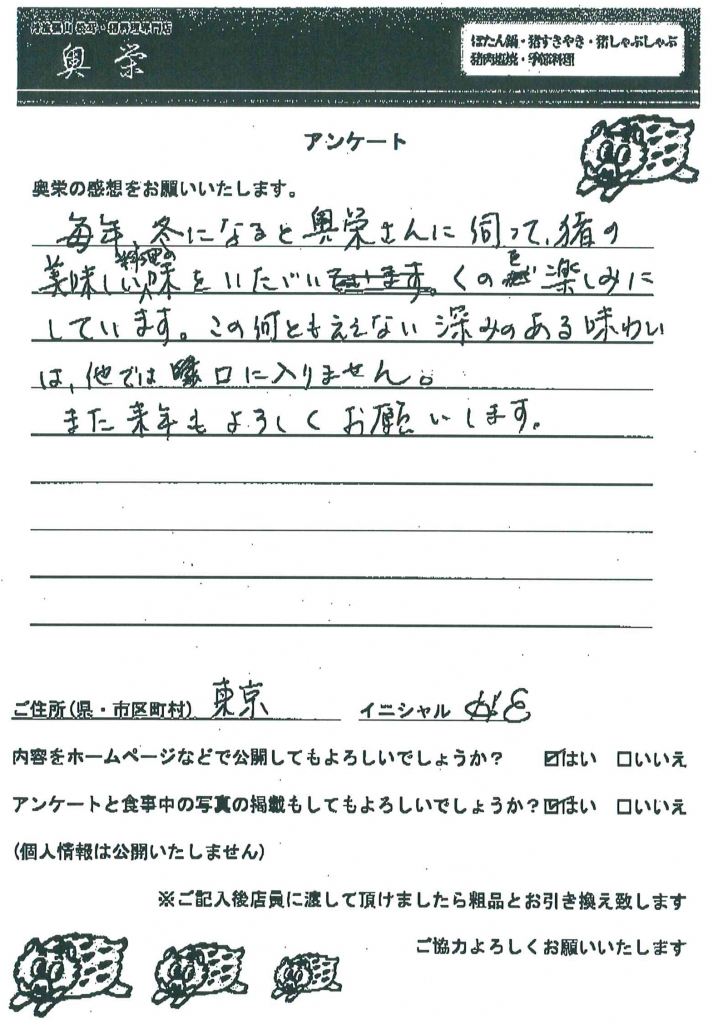 丹波篠山 牧場・猪料理専門店
奥栄
ぼたん鍋・猪すきやき・猪しゃぶしゃぶ
猪肉塩焼・季節料理
アンケート
奥栄の感想をお願いいたします。
毎年、冬になると奥栄さんに伺って、猪の
美味しい料理の味をいただいて くのを 楽しみに
しています。この何ともええない深みのある味わい
は、他では 口に入りません。
また来年もよろしくお願いします。
ご住所(県・市区町村) 東京 イニシャル
内容をホームページなどで公開してもよろしいでしょうか? ☑はい □いいえ
アンケートと食事中の写真の掲載もしてもよろしいでしょうか?☑はい □いいえ
(個人情報は公開いたしません)
※ご記入後店員に渡して頂けましたら粗品とお引き換え致します
ご協力よろしくお願いいたします